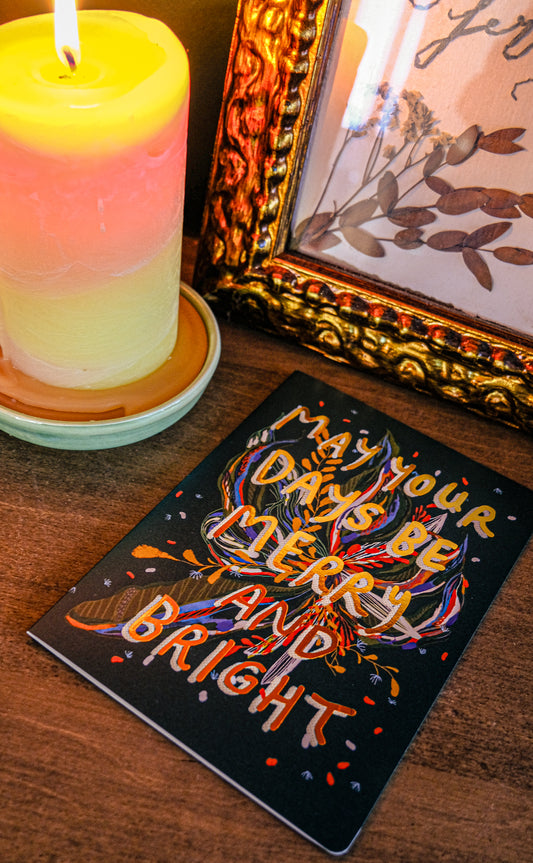 MAY YOUR
DAYS BE
MERRY
AND
BRIGHT